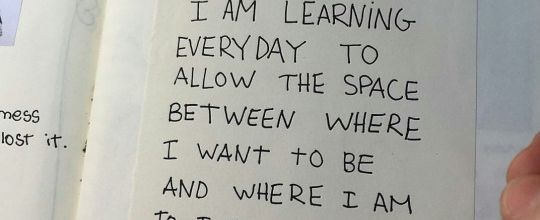 ness
lost it.
I AM LEARNING
EVERYDAY TO
ALLOW THE SPACE
BETWEEN WHERE
I WANT TO BE
AND WHERE I AM
TO